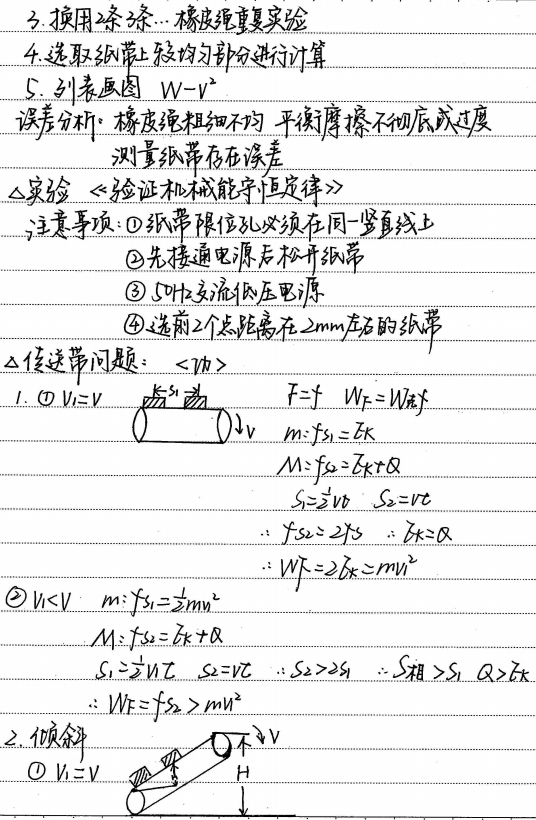 3. 换用2条3条… 橡皮绳重复实验
4. 选取纸带上较均匀部分进行计算
5. 列表画图 W-v²
误差分析: 橡皮绳粗细不均 平衡摩擦不彻底或过度
测量纸带存在误差
△实验 《验证机械能守恒定律》
注意事项: ①纸带限位孔必须在同一竖直线上
②先接通电源后松开纸带
③ 50Hz交流低压电源
④选前2个点距离在2mm左右的纸带
△传送带问题: <功>
1. ① V₁=V S₁ V F=f W_F=W克f
m: fs₁=Ek
M: fs₂=Ek+Q
S₁=½vt S₂=vt
∴ fs₂=2fs ∴ Ek=Q
∴ WF=2Ek=mv₁²
② V₁<V m: fs₁=½mv₁²
M: fs₂=Ek+Q
S₁=½v₁t S₂=vt ∴ S₂>2S₁ ∴ S相>S₁ Q>Ek
∴ WF=fs₂>mv₁²
2. 倾斜 V
① V₁=V H